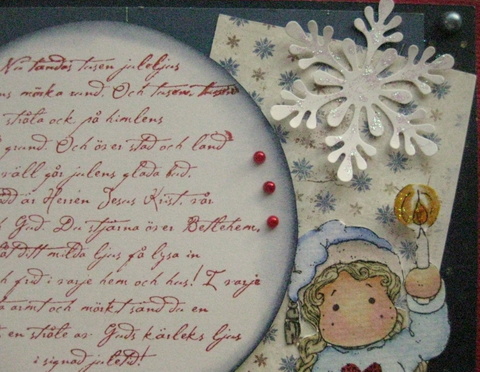 Nu tändas tusen juleljus
ns mörka rund Och tusen, tusen
stråla ock på himlens
grund. Och över stad och land
väll går julens glada bud.
dd är Herren Jesus Krist, vår
h Gud. Du stjärna över Betlehem,
åt ditt milda ljus få lysa in
h frid i varje hem och hus! I varje
a armt och mörkt sänd du en
t, en stråle av Guds kärleks ljus
i signad juletid!